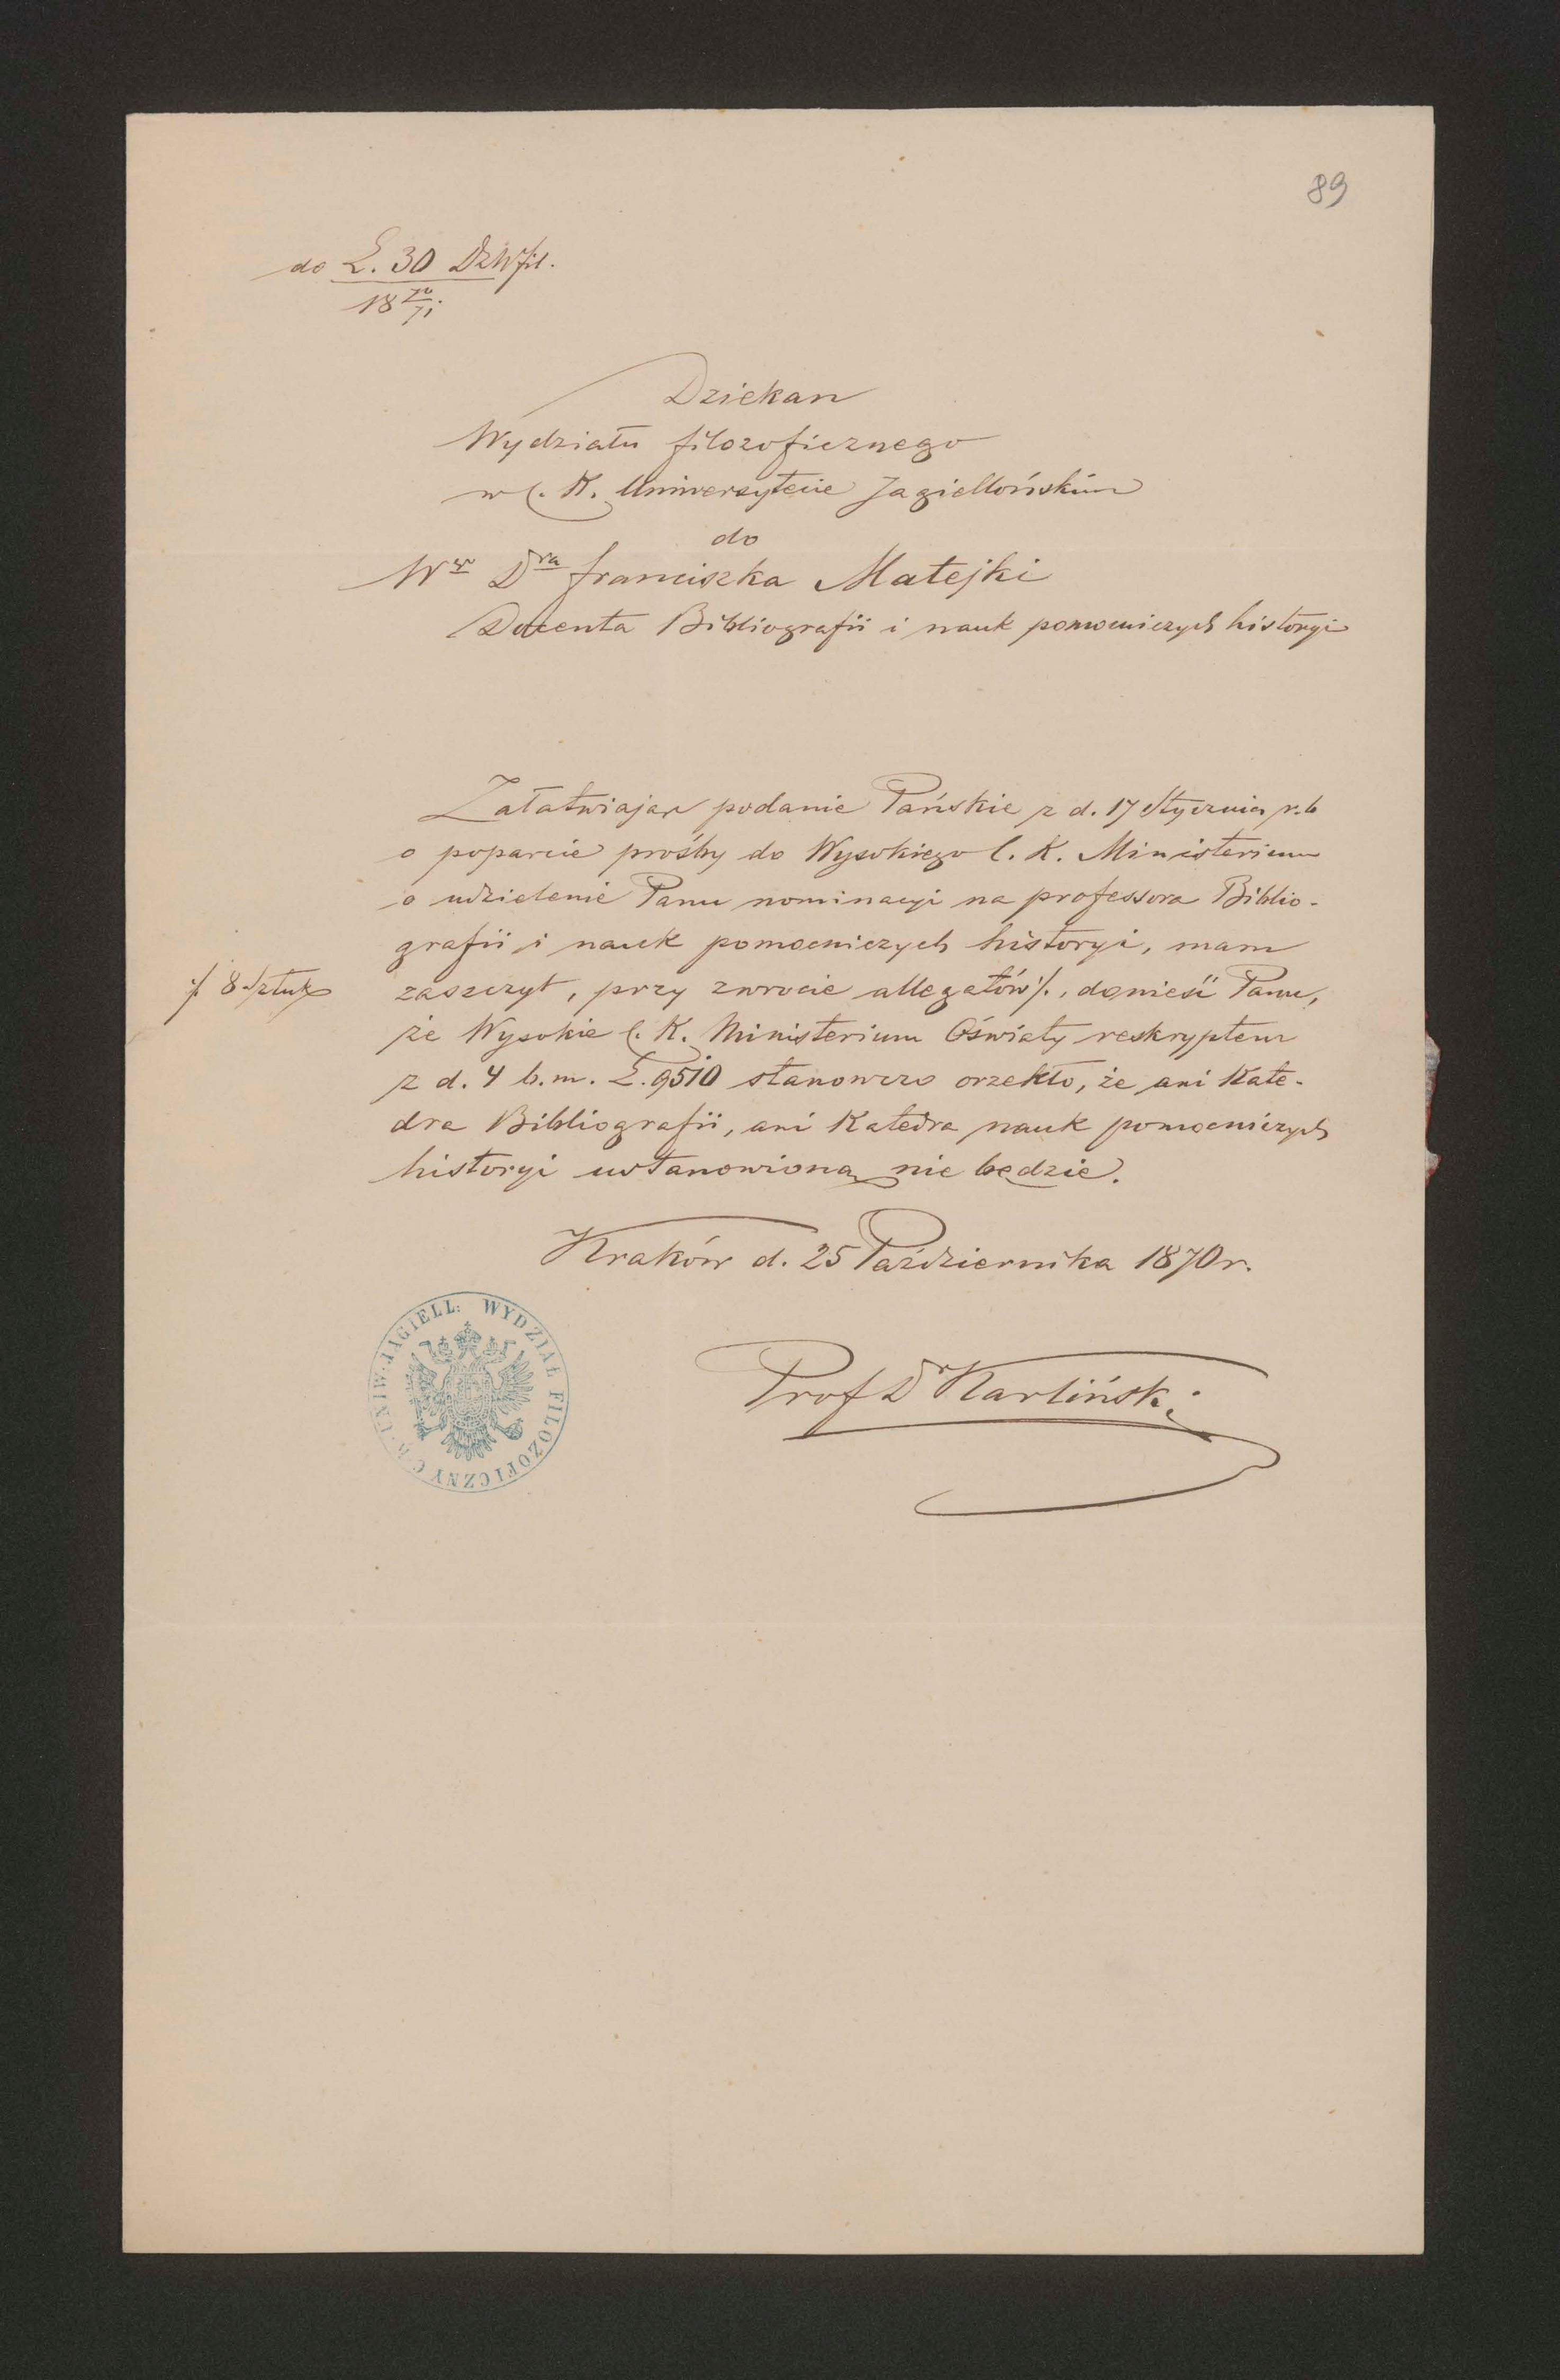 89
do L. 30 DzWfil.
18 70/71
Dziekan
Wydziału filozoficznego
w C. K. Uniwersytecie Jagiellońskim
do
Dra Franciszka Matejki
Docenta Bibliografii i nauk pomocniczych historyi
Załatwiając podanie Pańskie z d. 17 Stycznia r.b
o poparcie prośby do Wysokiego C. K. Ministerium
o udzielenie Panu nominacyi na professora Biblio-
grafii i nauk pomocniczych historyi, mam
·/. 8 sztuk
zaszczyt, przy zwrocie allegatów ·/., donieść Panu,
że Wysokie C. K. Ministerium Oświaty reskryptem
z d. 4 b.m. L. 9510 stanowczo orzekło, że ani Kate-
dra Bibliografii, ani Katedra nauk pomocniczych
historyi ustanowioną nie będzie.
Kraków d. 25 Października 1870 r.
C. K. UNIW: JAGIELL: WYDZIAŁ FILOZOFICZNY
Prof Dr Karliński